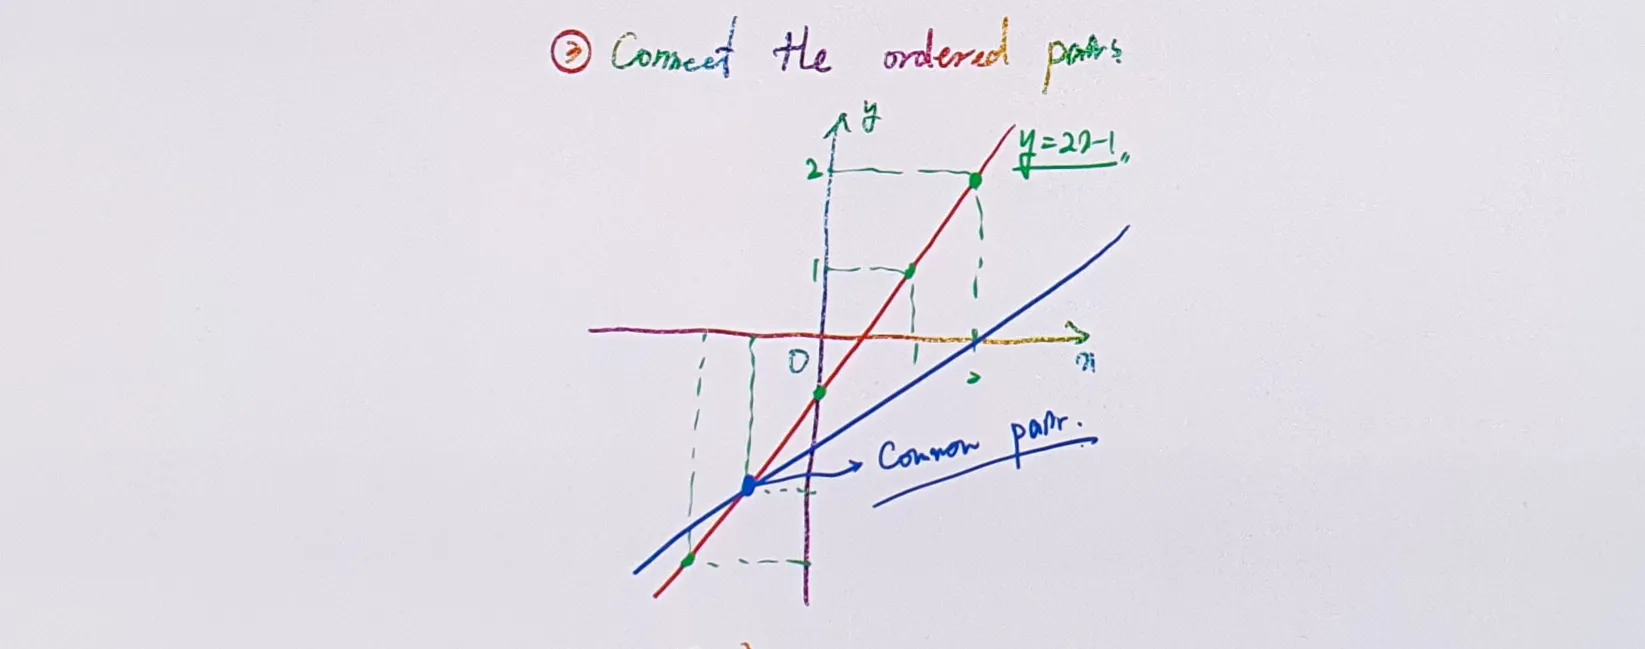 ③ Connect the ordered pairs
y
2
y=2x-1
1
0
x
2
Common pair.